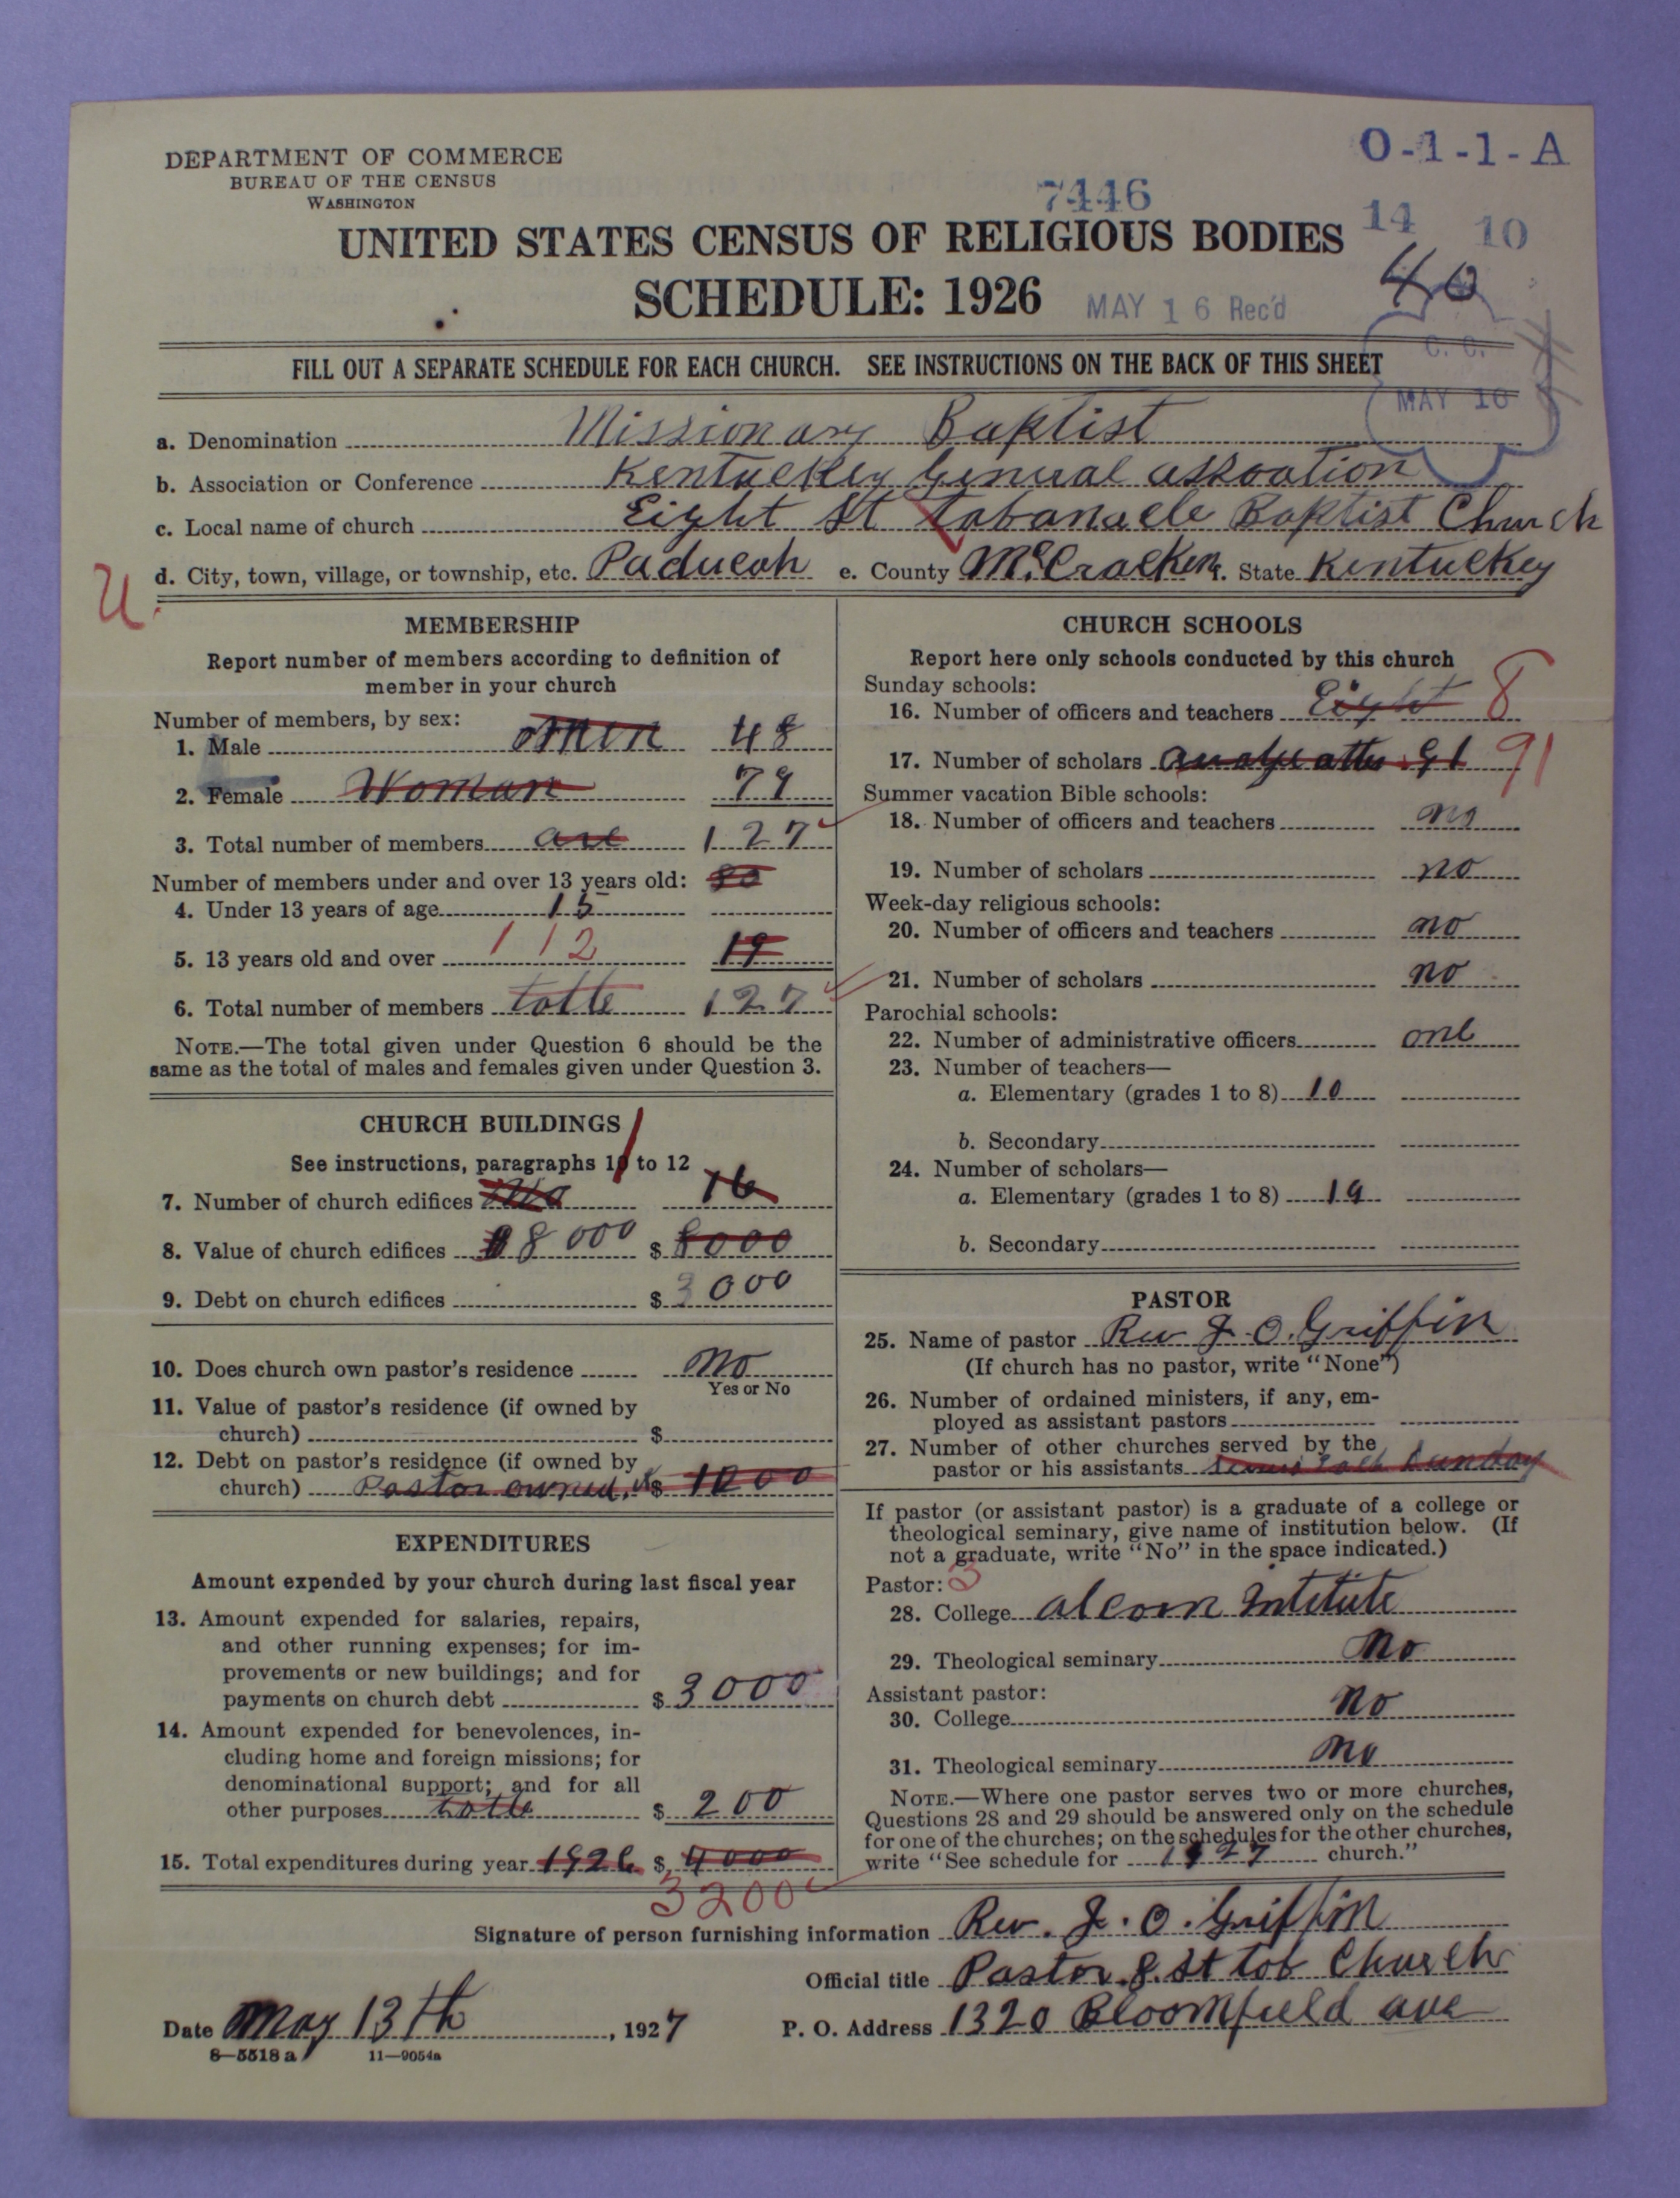 DEPARTMENT OF COMMERCE
BUREAU OF THE CENSUS
WASHINGTON
O-1-1-A
7446
14 10
UNITED STATES CENSUS OF RELIGIOUS BODIES
40
SCHEDULE: 1926
MAY 16 Rec'd
C. C.
MAY 10
FILL OUT A SEPARATE SCHEDULE FOR EACH CHURCH. SEE INSTRUCTIONS ON THE BACK OF THIS SHEET
a. Denomination Missionary Baptist
b. Association or Conference Kentuckey General assoation
c. Local name of church Eight St Tabanacle Baptist Church
d. City, town, village, or township, etc. Paducah e. County McCracken f. State Kentuckey
U.
MEMBERSHIP
Report number of members according to definition of
member in your church
Number of members, by sex:
1. Male men 48
2. Female Woman 79
3. Total number of members are 127
Number of members under and over 13 years old: 80
4. Under 13 years of age 15
5. 13 years old and over 112 19
6. Total number of members totle 127
NOTE.—The total given under Question 6 should be the
same as the total of males and females given under Question 3.
CHURCH BUILDINGS
See instructions, paragraphs 10 to 12
1
7. Number of church edifices 16
8. Value of church edifices 8000 $ 8000
9. Debt on church edifices $ 3000
10. Does church own pastor's residence no
Yes or No
11. Value of pastor's residence (if owned by
church) $
12. Debt on pastor's residence (if owned by
church) Pastor owned $ 1000
EXPENDITURES
Amount expended by your church during last fiscal year
13. Amount expended for salaries, repairs,
and other running expenses; for im-
provements or new buildings; and for
payments on church debt $ 3000
14. Amount expended for benevolences, in-
cluding home and foreign missions; for
denominational support; and for all
other purposes totle $ 200
15. Total expenditures during year 1926 $ 4000
3200
CHURCH SCHOOLS
Report here only schools conducted by this church
Sunday schools:
16. Number of officers and teachers Eight 8
17. Number of scholars 91 91
Summer vacation Bible schools:
18. Number of officers and teachers no
19. Number of scholars no
Week-day religious schools:
20. Number of officers and teachers no
21. Number of scholars no
Parochial schools:
22. Number of administrative officers one
23. Number of teachers—
a. Elementary (grades 1 to 8) 10
b. Secondary
24. Number of scholars—
a. Elementary (grades 1 to 8) 19
b. Secondary
PASTOR
25. Name of pastor Rev J. O. Griffin
(If church has no pastor, write "None")
26. Number of ordained ministers, if any, em-
ployed as assistant pastors
27. Number of other churches served by the
pastor or his assistants Sunday
If pastor (or assistant pastor) is a graduate of a college or
theological seminary, give name of institution below. (If
not a graduate, write "No" in the space indicated.)
Pastor: 3
28. College alcorn Intetute
29. Theological seminary no
Assistant pastor:
30. College no
31. Theological seminary no
NOTE.—Where one pastor serves two or more churches,
Questions 28 and 29 should be answered only on the schedule
for one of the churches; on the schedules for the other churches,
write "See schedule for 1927 church."
Signature of person furnishing information Rev. J. O. Griffin
Official title Pastor 8. St tob Church
Date May 13th, 1927
P. O. Address 1320 Bloomfield ave
8—5518 a 11—9054a